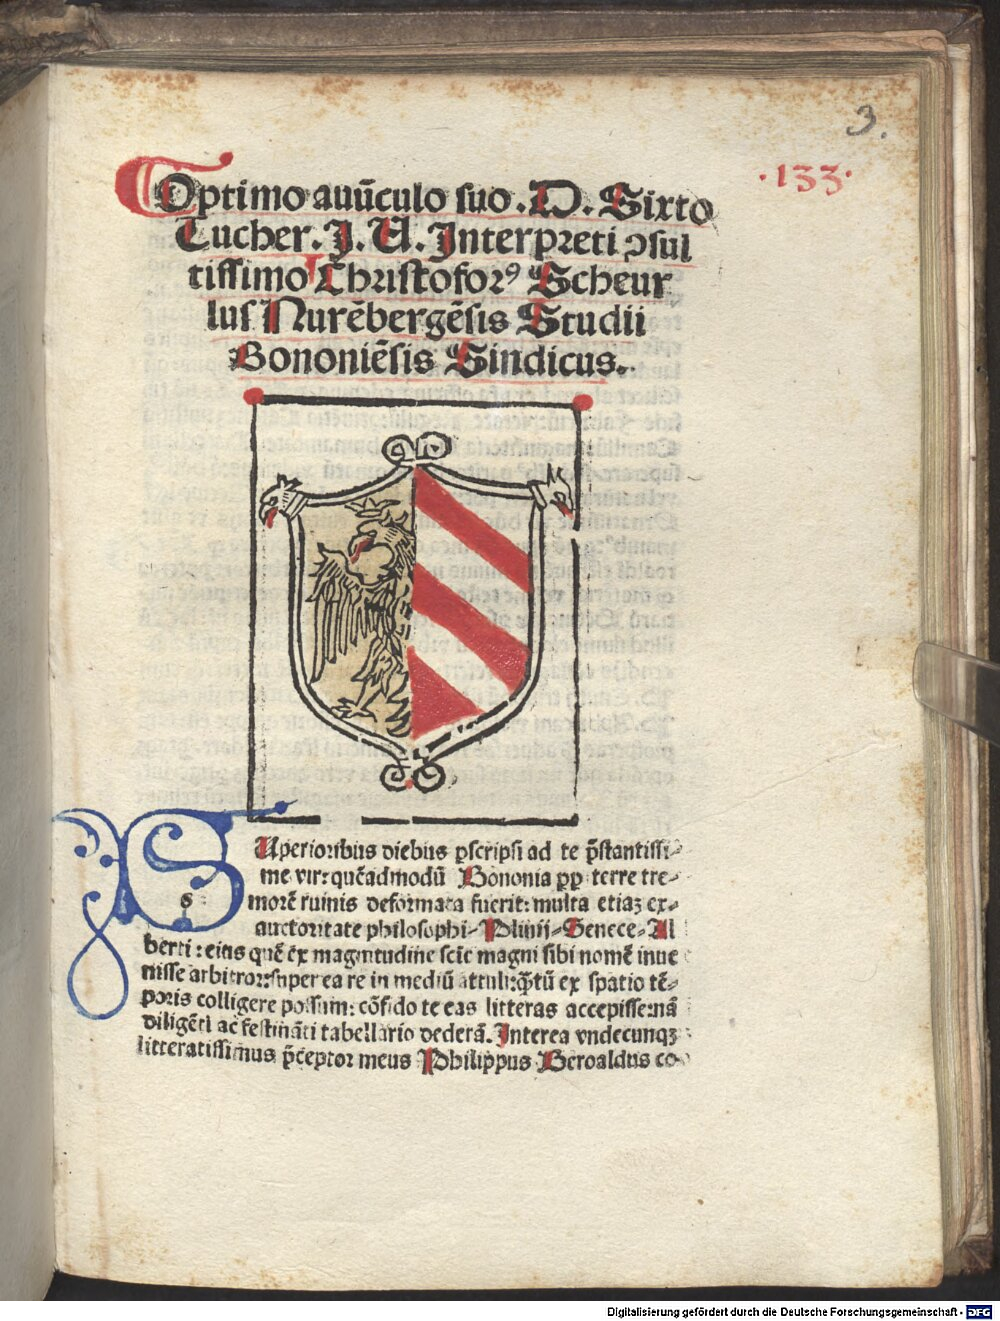 3.
·133·
Optimo avūculo suo. D. Sixto
Tucher. J. U. Interpreti ↄsul
tissimo Christoforꝰ Scheur
lus Nurēbergēsis Studii
Bononiēsis Sindicus.
SUperioribus diebus ꝓscripsi ad te p̄stantissi⸗
me vir: quēadmodū Bononia ꝓꝑ terre tre⸗
morē ruinis deformata fuerit: multa etiaꝫ ex⸗
auctoritate philosophi⸗ Plinii⸗ Senece⸗ Al
berti: eius quē ex magnitudine scīe magni sibi nomē inue
nisse arbitror: super ea re in mediū attuli: q̄tū ex spatio tē⸗
poris colligere possum: cōfido te eas litteras accepisse: nā
diligēti ac festināti tabellario dederā. Interea vndecunqꝫ
litteratissimus p̄ceptor meus Philippus Beroaldus co⸗
Digitalisierung gefördert durch die Deutsche Forschungsgemeinschaft - DFG